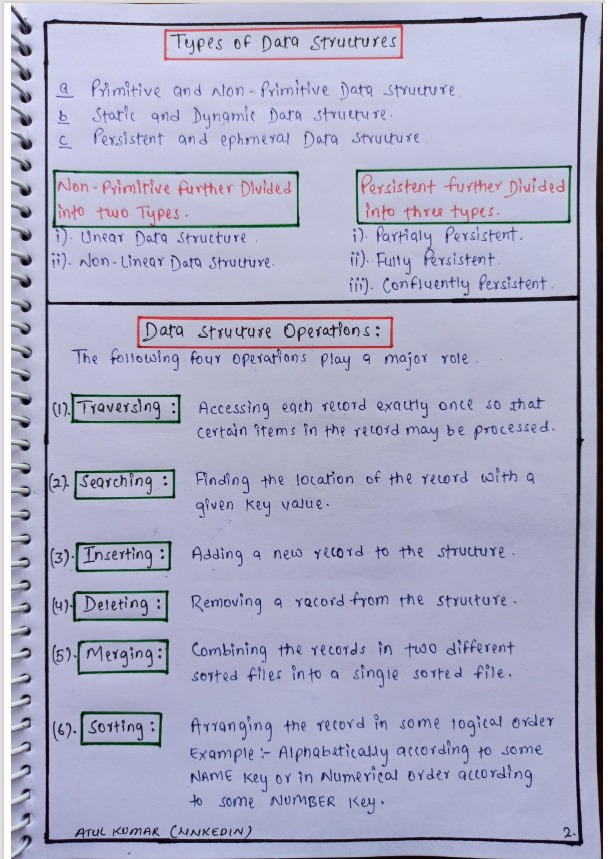 Types of Data Structures
a Primitive and Non-Primitive Data structure
b Static and Dynamic Data structure.
c Persistent and ephmeral Data structure
Non-Primitive further Divided
into two Types.
i). Linear Data structure.
ii). Non-Linear Data structure.
Persistent further Divided
into three types.
i). Partialy Persistent.
ii). Fully Persistent.
iii). Confluently Persistent.
Data structure Operations:
The following four operations play a major role.
(1). Traversing : Accessing each record exactly once so that
certain items in the record may be processed.
(2). Searching : Finding the location of the record with a
given key value.
(3). Inserting : Adding a new record to the structure.
(4). Deleting : Removing a racord from the structure.
(5). Merging : Combining the records in two different
sorted files into a single sorted file.
(6). Sorting : Arranging the record in some logical order
Example :- Alphabetically according to some
NAME key or in Numerical order according
to some NUMBER key.
ATUL KUMAR (LINKEDIN)
2.